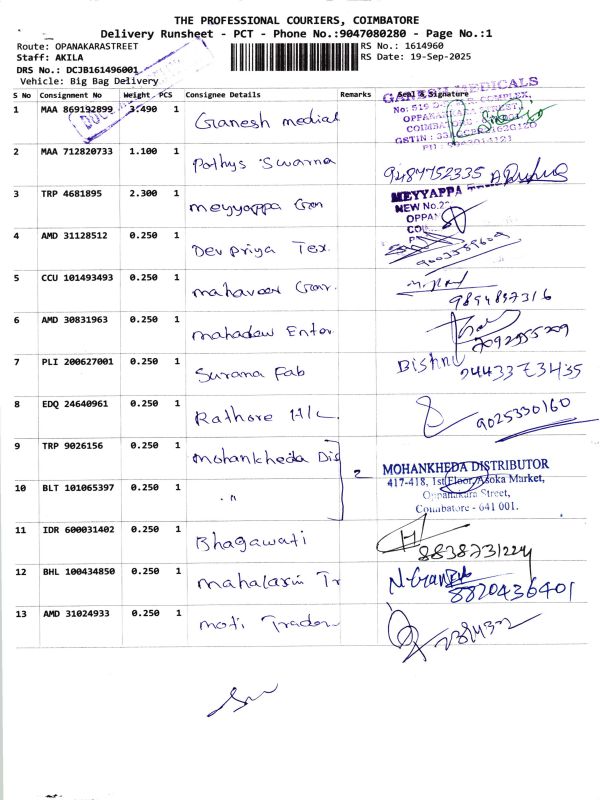 THE PROFESSIONAL COURIERS, COIMBATORE
Delivery Runsheet - PCT - Phone No.:9047080280 - Page No.:1
Route: OPANAKARASTREET RS No.: 1614960
Staff: AKILA RS Date: 19-Sep-2025
DRS No.: DCJB161496001
Vehicle: Big Bag Delivery
S No Consignment No Weight PCS Consignee Details Remarks Seal & Signature
1 MAA 869192899 3.490 1 Ganesh medial
GANESH MEDICALS
OPPANAKARA STREET,
2 MAA 712820733 1.100 1 Pothys Swarna 9487752335
3 TRP 4681895 2.300 1 meyyappa Gon MEYYAPPA
NEW No.
OPPA
4 AMD 31128512 0.250 1 Dev priya Tex.
5 CCU 101493493 0.250 1 mahaveer Gar.
6 AMD 30831963 0.250 1 mahadev Enter
7 PLI 200627001 0.250 1 Surana Fab Bishnu
8 EDQ 24640961 0.250 1 Rathore H/L. 9025330160
9 TRP 9026156 0.250 1 mohankheda Dis 2 MOHANKHEDA DISTRIBUTOR
417-418, 1st Floor, Asoka Market,
Oppanakara Street,
Coimbatore - 641 001.
10 BLT 101065397 0.250 1 "
11 IDR 600031402 0.250 1 Bhagawati 8838731224
12 BHL 100434850 0.250 1 mahalaxmi Tr 8820436401
13 AMD 31024933 0.250 1 moti Trader